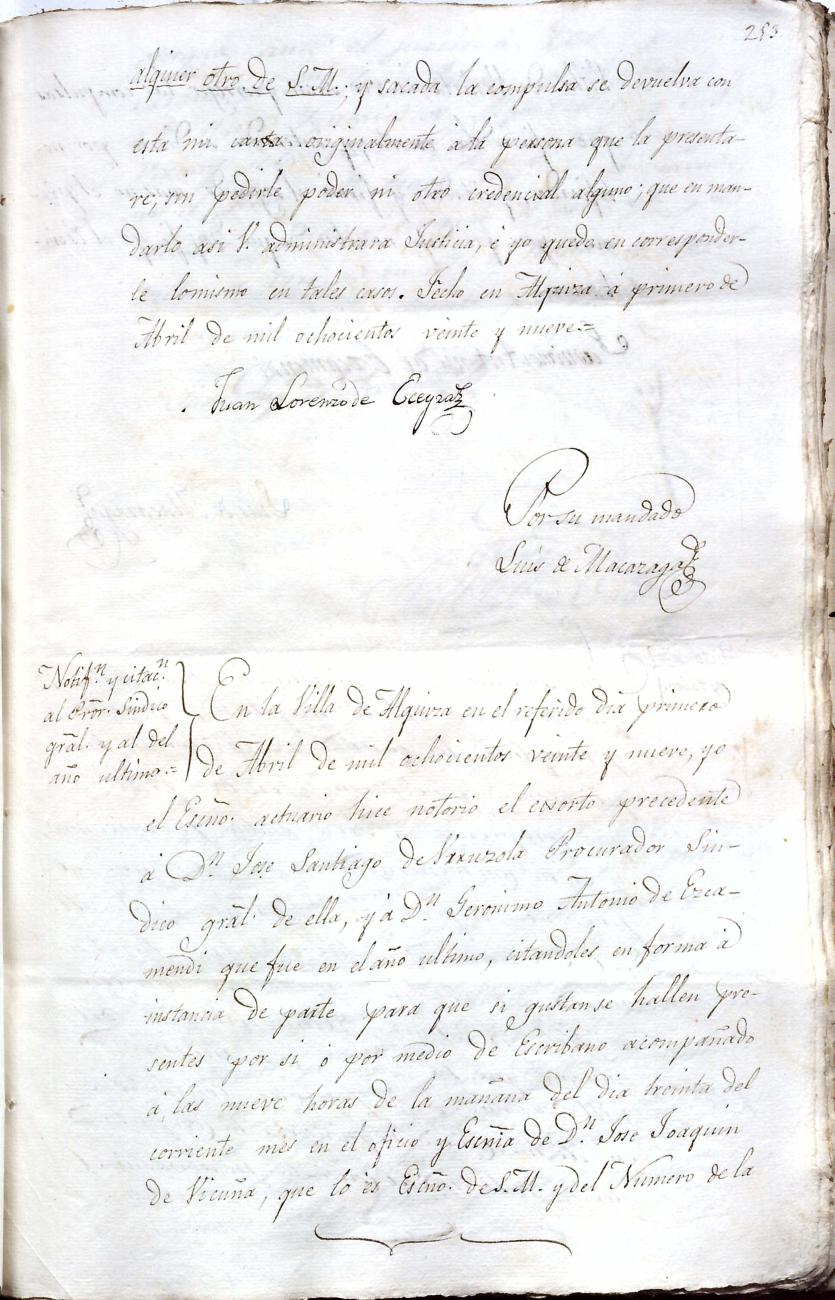 253
alquier otro de S. M. y sacada la compulsa se devuelva con
esta mi carta originalmente á la persona que la presenta-
re, sin pedirle poder ni otro credencial alguno; que en man-
darlo asi V. administrara Justicia, é yo quedo en corresponder-
le lo mismo en tales casos. Fecho en Alquiza á primero de
Abril de mil ochocientos veinte y nueve.=
Juan Lorenzo de Eceyza
Por su mandado
Luis de Macazaga
Notifⁿ. y citacⁿ.
al Prör. Sindico
grãl. y al del
año ultimo.=
En la Villa de Alquiza en el referido dia primero
de Abril de mil ochocientos veinte y nueve, yo
el Escño. actuario hice notorio el exorto precedente
á Dⁿ. Jose Santiago de Urruzola Procurador Sin-
dico grãl. de ella, y á Dⁿ Geronimo Antonio de Ezca-
mendi que fue en el año ultimo, citandoles en forma á
instancia de parte para que si gustan se hallen pre-
sentes por si ó por medio de Escribano acompañado
á las nueve horas de la mañana del dia treinta del
corriente mes en el oficio y Escñia de Dⁿ. Jose Joaquin
de Vicuña, que lo es Escño. de S. M. y del Numero de la